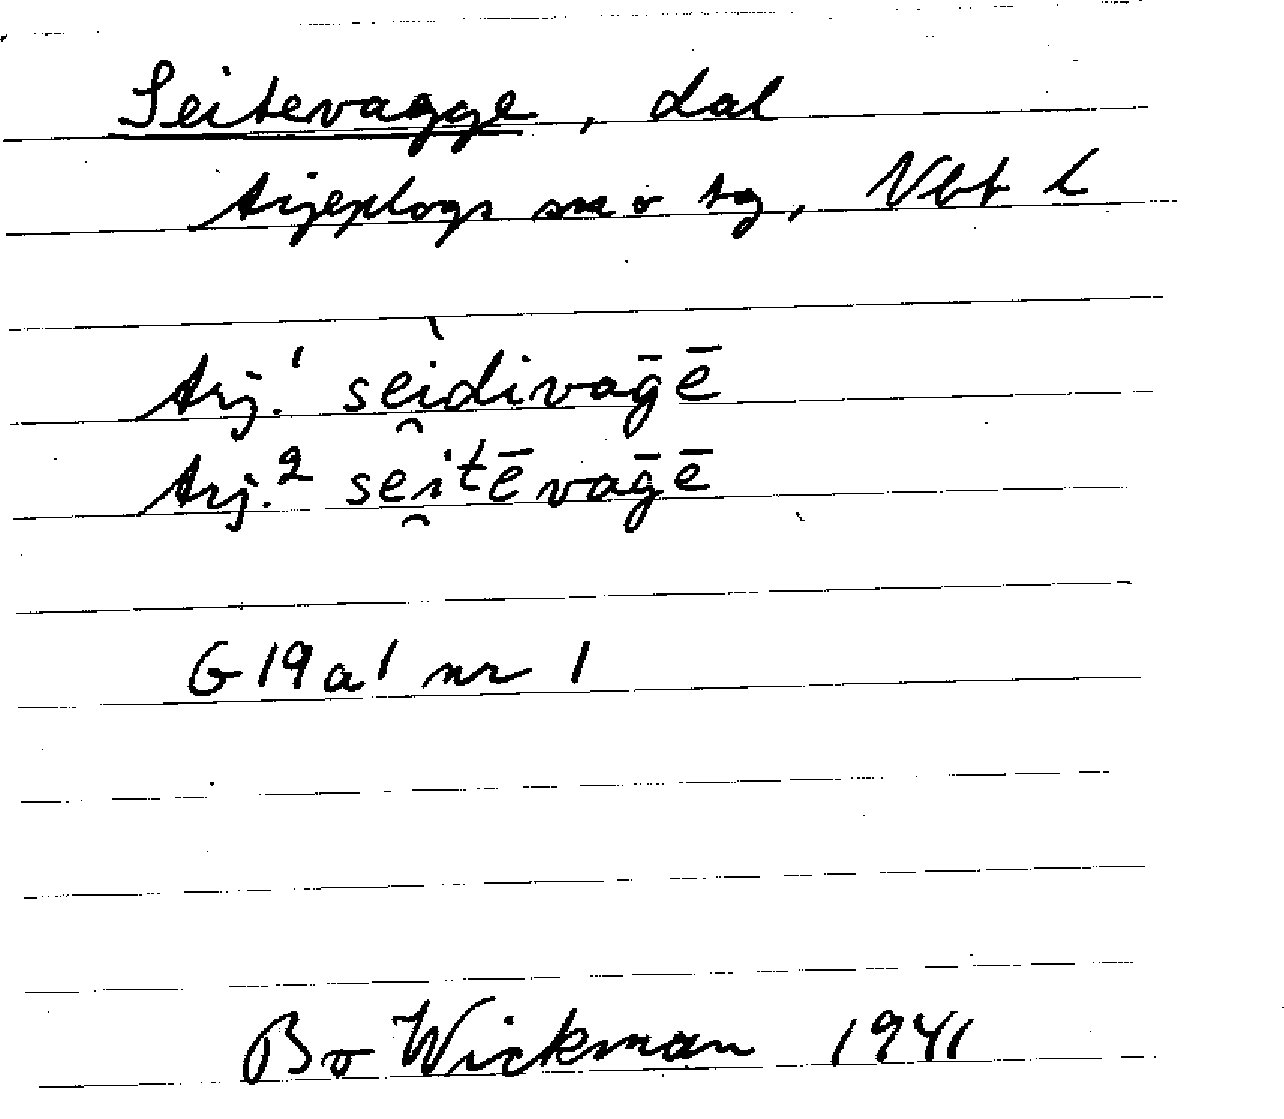 Seitevagge, dal
Arjeplogs sn o tg, Vbt L
Arj.¹ seì̯divaḡē
Arj.² sei̯tēvaḡē
G 19 a 1 nr 1
Bo Wickman 1941